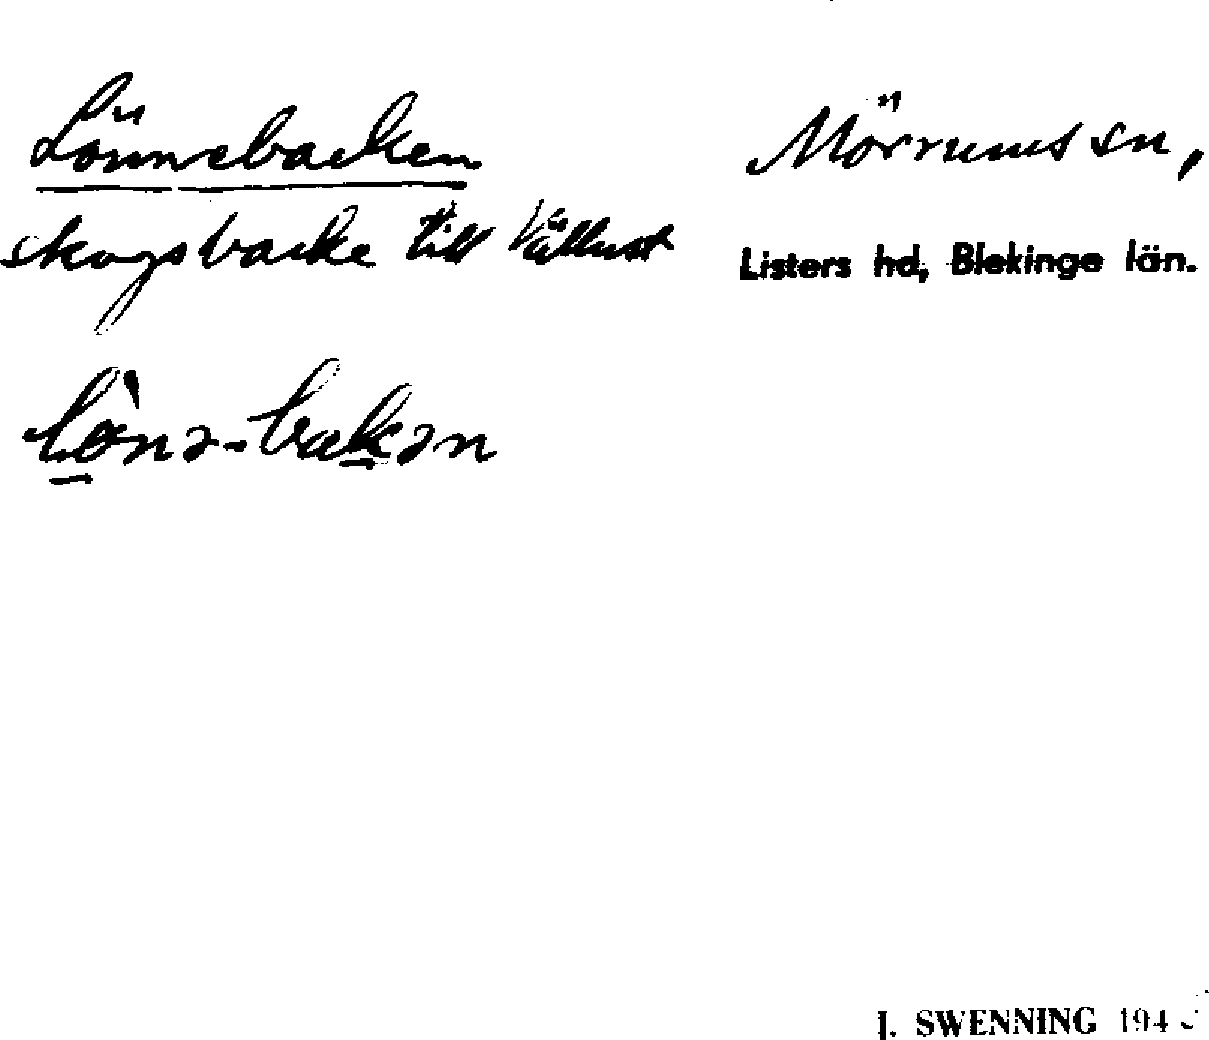 Lönnebacken
Mörrums sn,
skogsbacke till Vällust
Listers hd, Blekinge län.
lònə-bakən
J. SWENNING 194